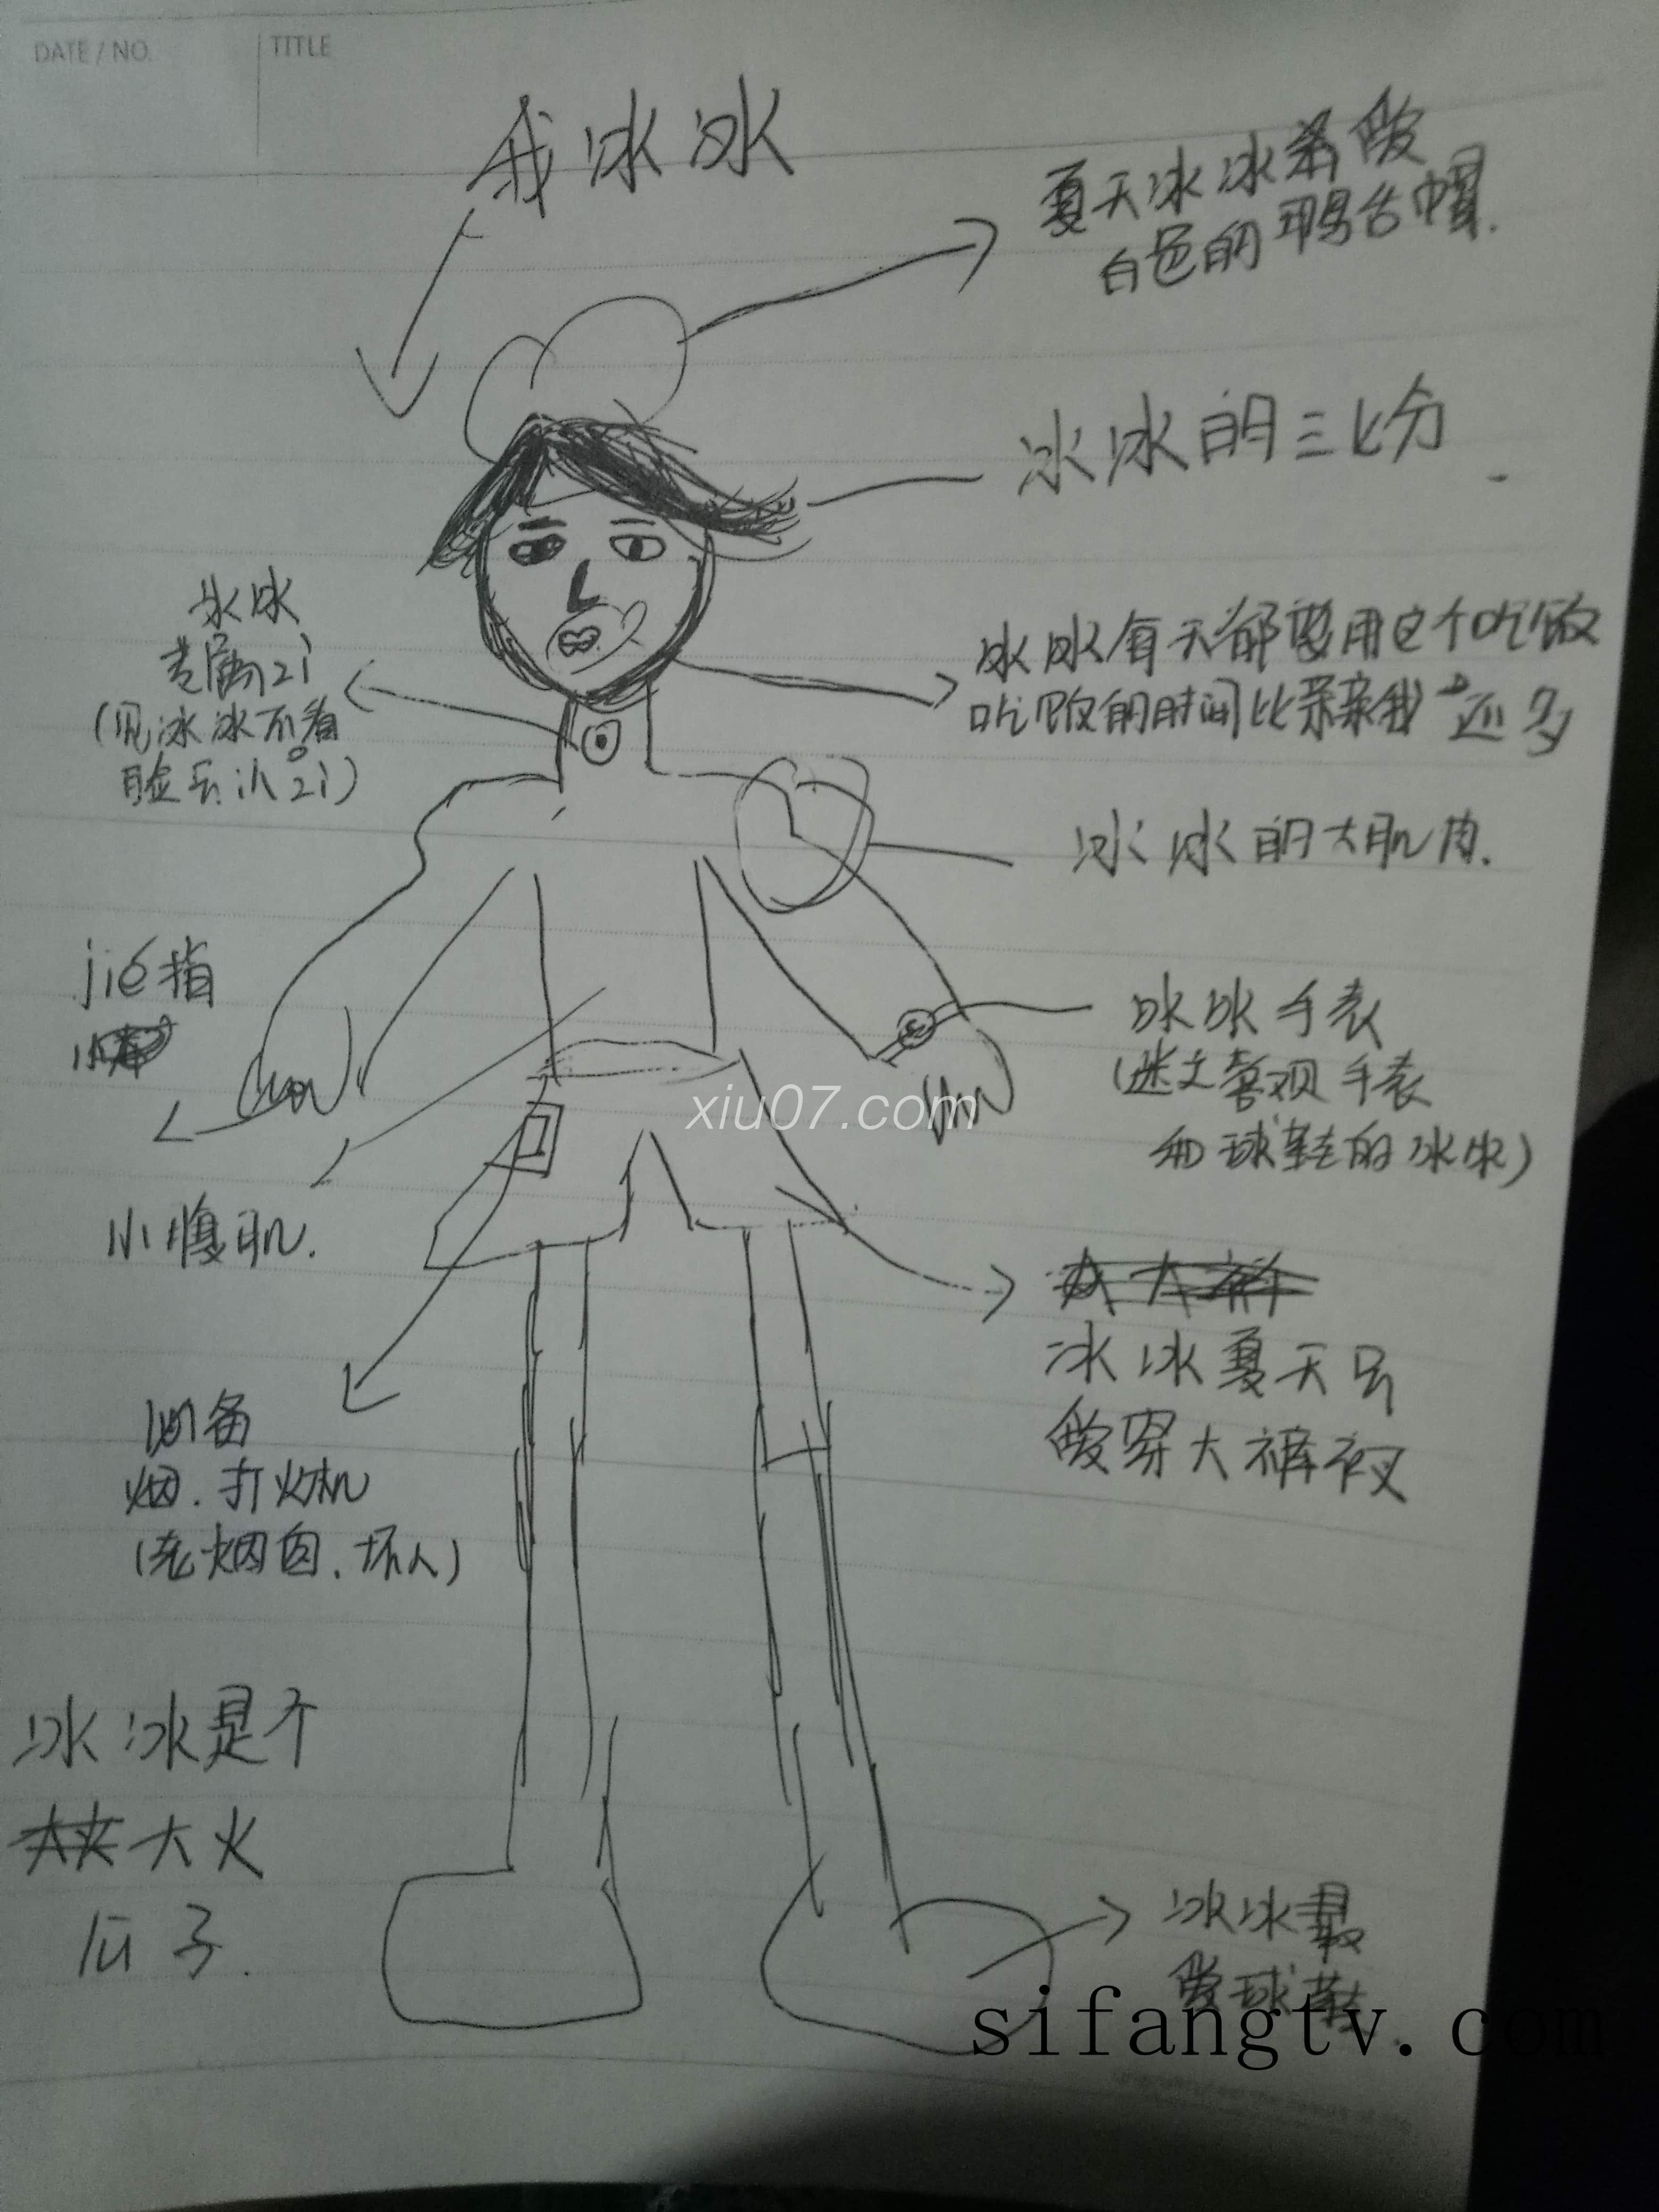 DATE / NO.
TITLE
我冰冰
夏天冰冰亲爱
白色的鸭舌帽.
冰冰的三七分
冰冰
专属zi
(见冰冰不看
脸只认zi)
冰冰每天都要用这个吃饭
吃饭的时间比亲亲我还多
冰冰的大肌肉.
jie指
冰冰手表
(迷之喜观手表
和球鞋的冰冰)
xiu07.com
小腹肌.
冰冰夏天只
爱穿大裤衩
必备
烟.打火机
(老烟囱.坏人)
冰冰是个
大火
瓜子.
冰冰最
爱球鞋
sifangtv.com